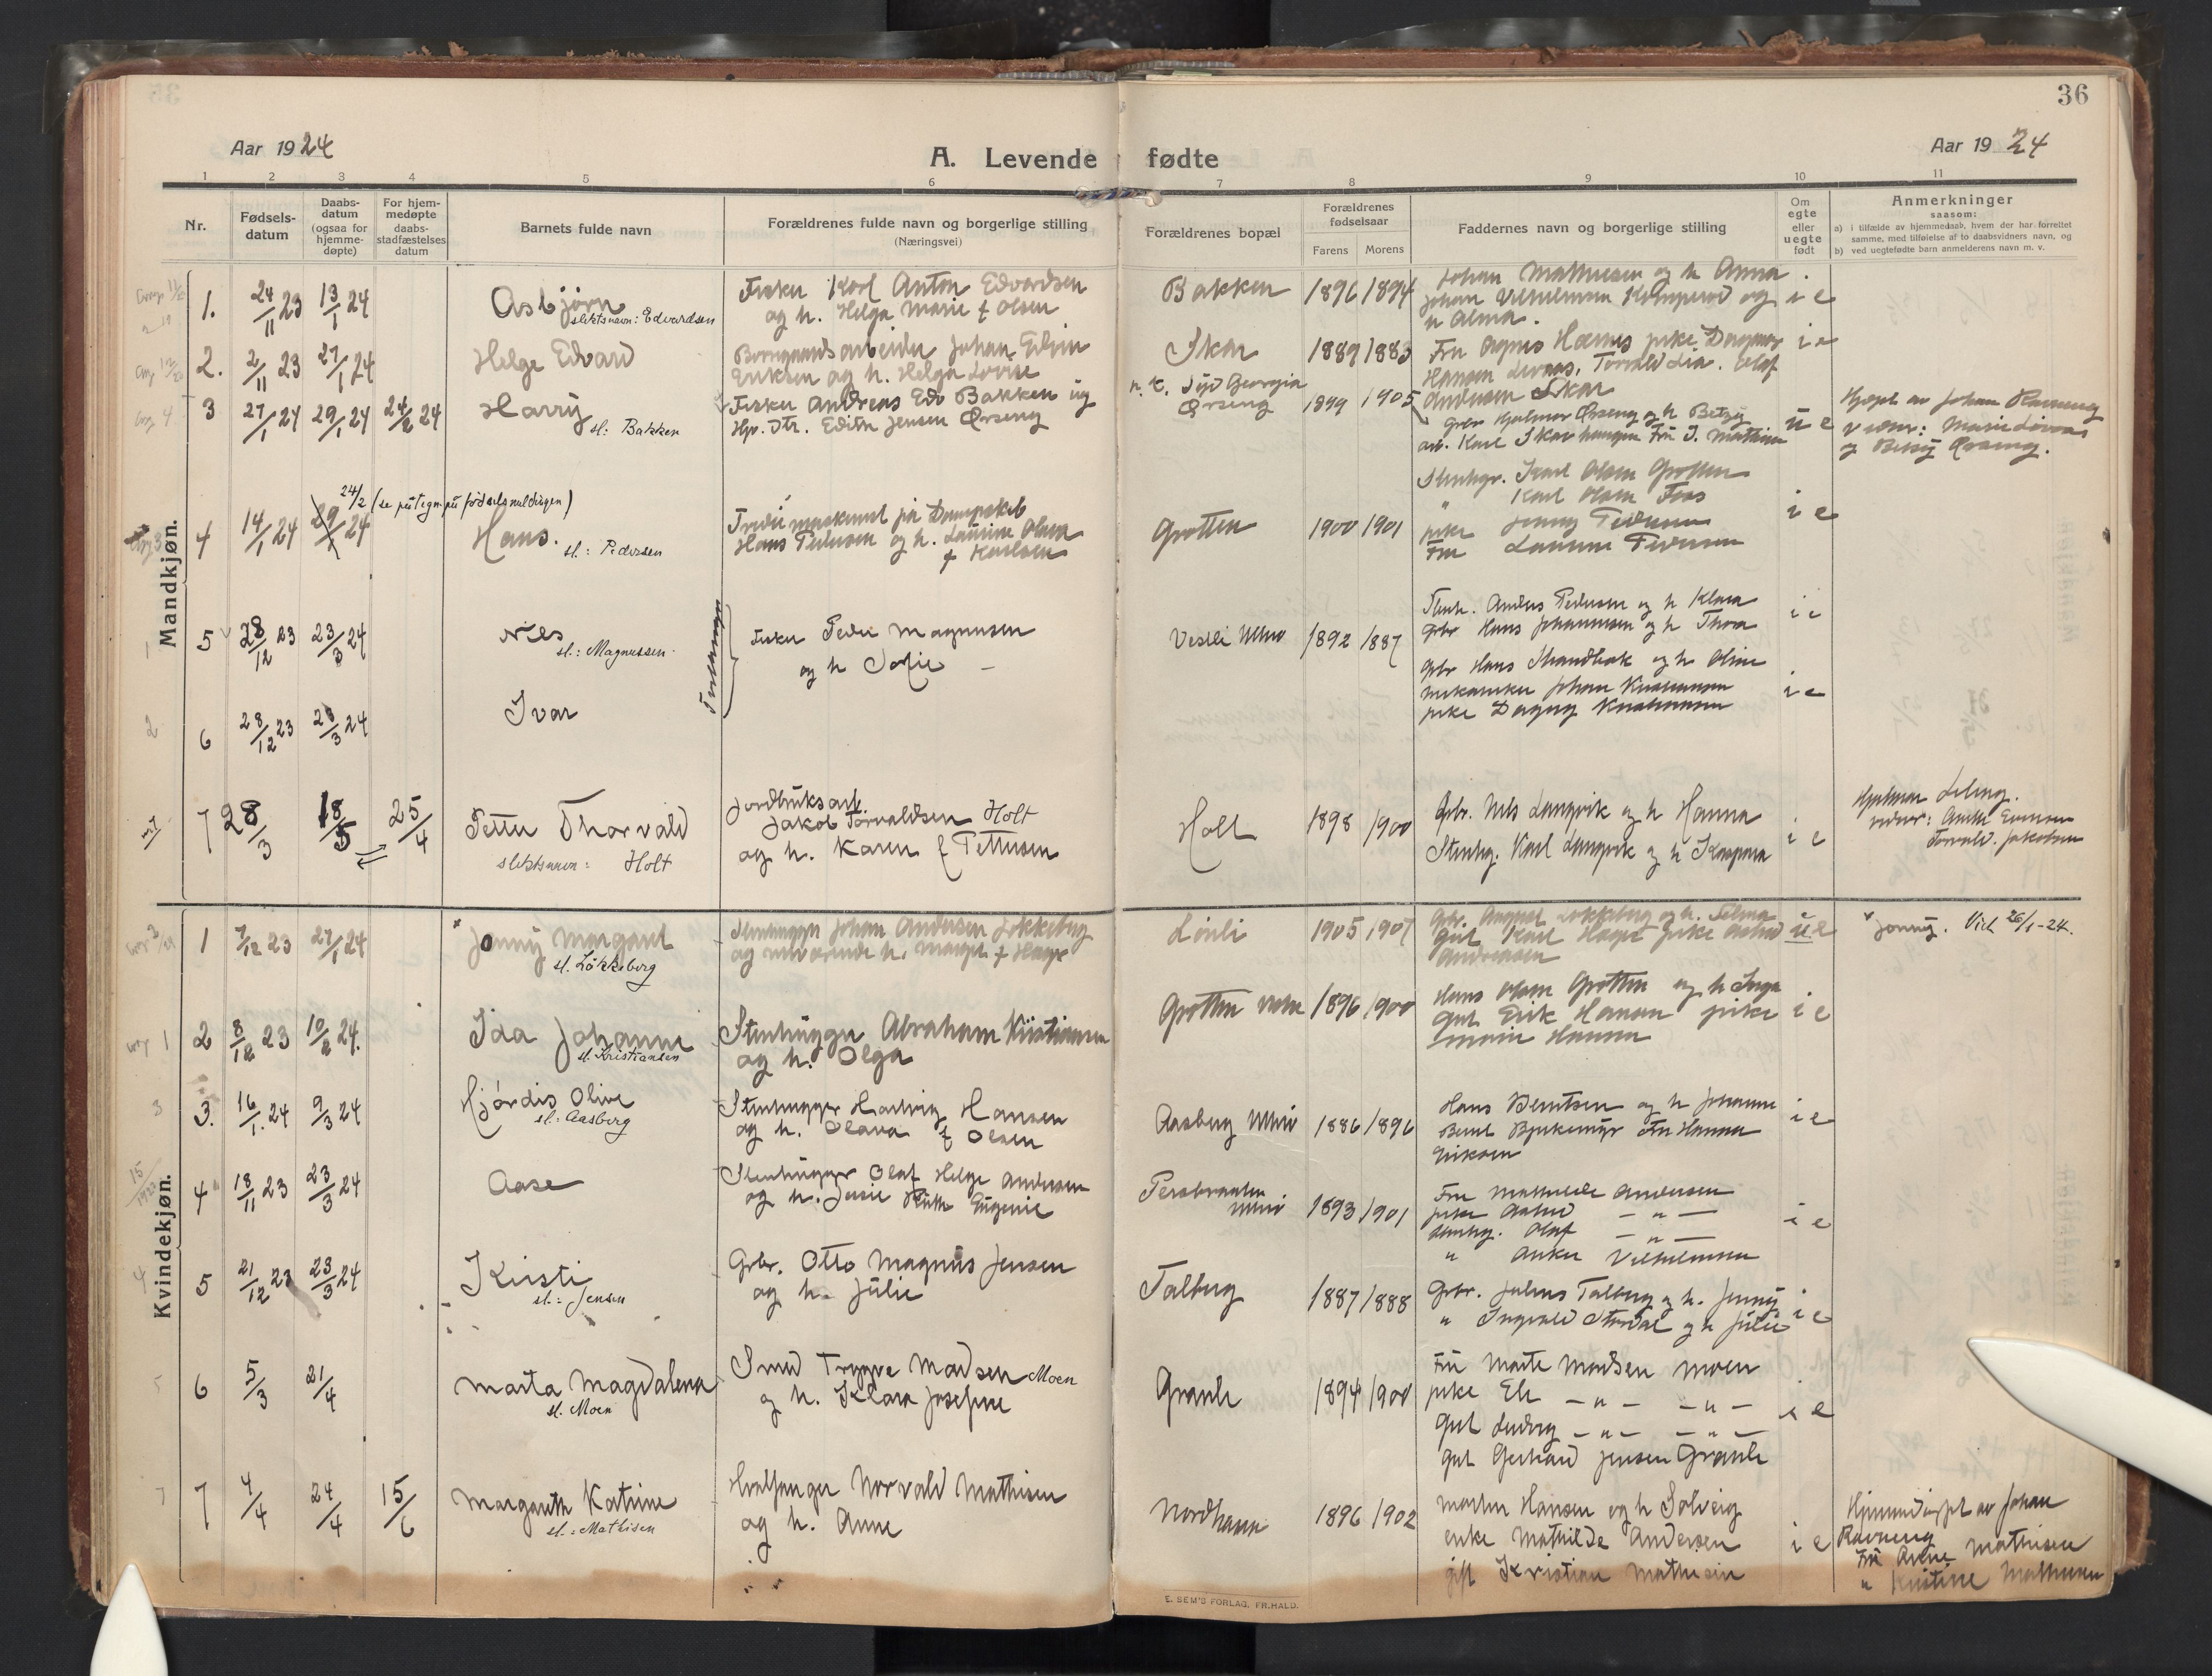 36
Aar 1924
A. Levende fødte
Aar 1924
1 2 3 4 5 6 7 8 9 10 11
Nr.
Fødsels-
datum
Daabs-
datum
(ogsaa for
hjemme-
døpte)
For hjem-
medøpte
daabs-
stadfæstelses
datum
Barnets fulde navn
Forældrenes fulde navn og borgerlige stilling
(Næringsvei)
Forældrenes bopæl
Forældrenes
fødselsaar
Farens Morens
Faddernes navn og borgerlige stilling
Om
egte
eller
uegte
født
Anmerkninger
saasom:
a) i tilfælde av hjemmedaab, hvem der har forrettet
samme, med tilføielse af to daabsvidners navn, og
b) ved uegtefødte barn anmelderens navn m. v.
Mandkjøn.
1. 24/11 23 13/1 24 Asbjørn
slektsnavn: Edvardsen
Fisker Karl Anton Edvardsen
og h. Helga Marie f Olsen
Bakken 1896 1894
Johan Mathiesen og h Anna
Johan Vilhelmsen Komperød og
h Alma.
i e
2. 2/11 23 27/1 24 Helge Edvard
arbeider Johan Edvin
Eriksen og h. Helga Lovise
Skar 1889 1883
Fru Agnes Hornes pike Dagmar
Hansen Torvald Lia. Olaf
Andersen Skar
i e
3 27/1 24 29/1 24 24/2 24 Harry
sl: Bakken
Fisker Andreas Edv Bakken ug
Hpr. Dtr. Edith Jensen Ørseng
n. t. Syd Georgia
Ørseng 1899 1905
Gbr Hjalmar Ørseng og h Betzy
arb. Karl Skarhaugen Fru J. Mathisen
u e
Hjdøpt av Johan Ravneng
Vidner: Marie
og Betzy Ørseng.
4 14/1 24 29/1 24
24/2 (se påtegn. på fødselsmeldingen)
Hans.
sl: Pedersen
Tredie maskinist på Dampskib
Hans Pedersen og h. Laurine Olava
f Karlsen
Grotten 1900 1901
Stenhgr. Karl Olsen Grotten
" Karl Olsen Foss
pike Jenny Pedersen
Fru Laurine Pedersen
i e
5 28/12 23 23/3 24 Nils
sl.: Magnussen
Fisker Peder Magnusen
og h Sofie
Vestli 1892 1887
Stenh. Anders Pedersen og h Klara
Gbr Hans Johannesen og h Thora
i e
6 28/12 23 23/3 24 Ivar
Gbr Hans Strandbak og h Oline
mekaniker Johan Kristiansen
pike Dagny Kristiansen
i e
7 28/3 18/5 25/4 Petter Thorvald
slektsnavn: Holt
Jordbruksarb.
Jakob Torvaldsen Holt
og h. Karen f Pettersen
Holt 1898 1900
Gbr. Nils Langvik og h Hanna
Stenhg. Karl Langvik og h Kaspara
i e
Hjalmar
vidner:
Torvald. Jakobsen
Kvindekjøn.
1 7/12 23 27/1 24 Jonny Margaret
sl. Løkkeberg
Stenhugger Johan Andersen Løkkeberg
og nuværende h. Margit f Hauge
Lønli 1905 1907
Gbr. August Løkkeberg og h. Selma
gut Karl Hauge pike Astrid
Andreassen
u e
Jonny. Vid 26/1-24.
2 8/12 23 10/2 24. Ida Johanne
sl. Kristiansen
Stenhugger Abraham Kristiansen
og h. Olga
Grotten 1896 1900
Hans Olsen Grotten og h Inga
gut Erik Hansen pike
Hansen
i e
3. 16/1. 24 9/3 24 Hjördis Olive
sl: Aasberg
Stenhugger Hartvig Hansen
og h. Olava f Olsen
Aasberg 1886 1896
Hans Berntsen og h Johanne
Bernt Bjerkemyr Fru Hanna
Eriksen
i e
4 18/11 23 23/3 24 Aase
Stenhugger Olaf Helge Andersen
og h. Jessie Ruth Eugenie
Persbraaten 1893 1901
Fru Mathilde Andersen
pike Astrid — " —
Stenhg. Olaf — " —
" Anker Vilhelmsen
i e
5 21/12 23 23/3 24 Kirsti
sl.: Jensen
Gbr. Otto Magnus Jensen
og h. Julie
Talberg 1887 1888
Gbr. Julius Talberg og h. Jenny
" Ingvald Stordal og h Julie
i e
6 5/3 21/4 Marta Magdalena
sl. Moen
Smed Trygve Madsen Moen
og h. Klara Josefine
Graali 1894 1900
Fru Marte Madsen Moen
pike Eli — " — — " —
gut Ludvig — " — — " —
gut Gerhard Jensen Graali
i e
7 4/4 24/4 15/6 Margareth Katrine
sl.: Mathisen
Hvalfanger Norvald Mathisen
og h. Anne
Nordhavn 1896 1902
Martin Hansen og h Solveig
enke Mathilde Andersen
gift Kristian Mathisen
i e
Hjemmedøpt av Johan
Ravneng
Fru Anne Mathisen
" Kristine Mathisen
E. SEM'S FORLAG, FR.HALD.